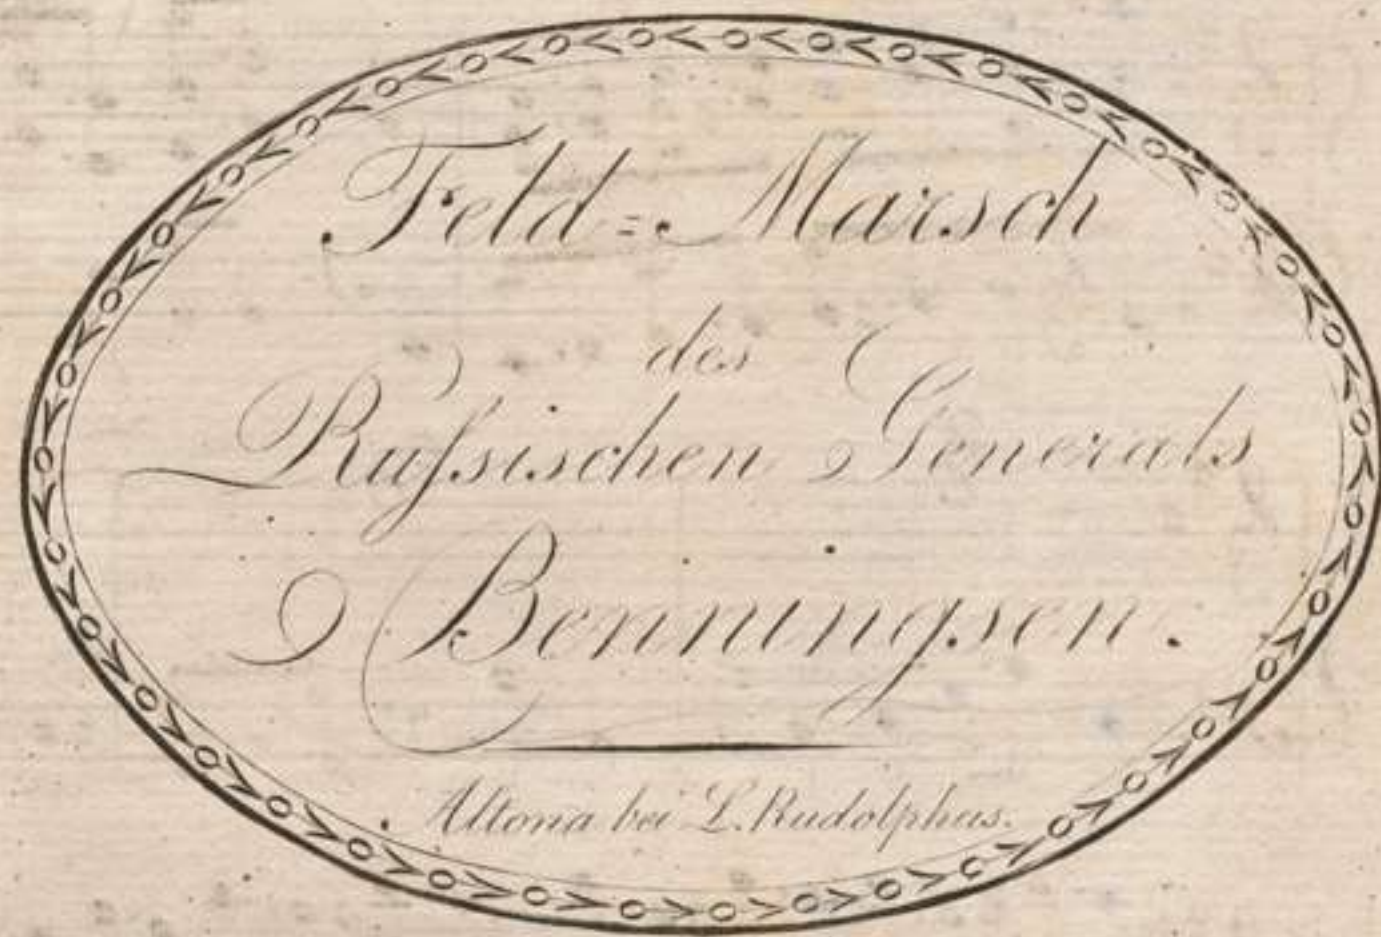 Feld=Marsch
des
Rußsischen Generals
Benningsen.
Altona bei L. Rudolphus.